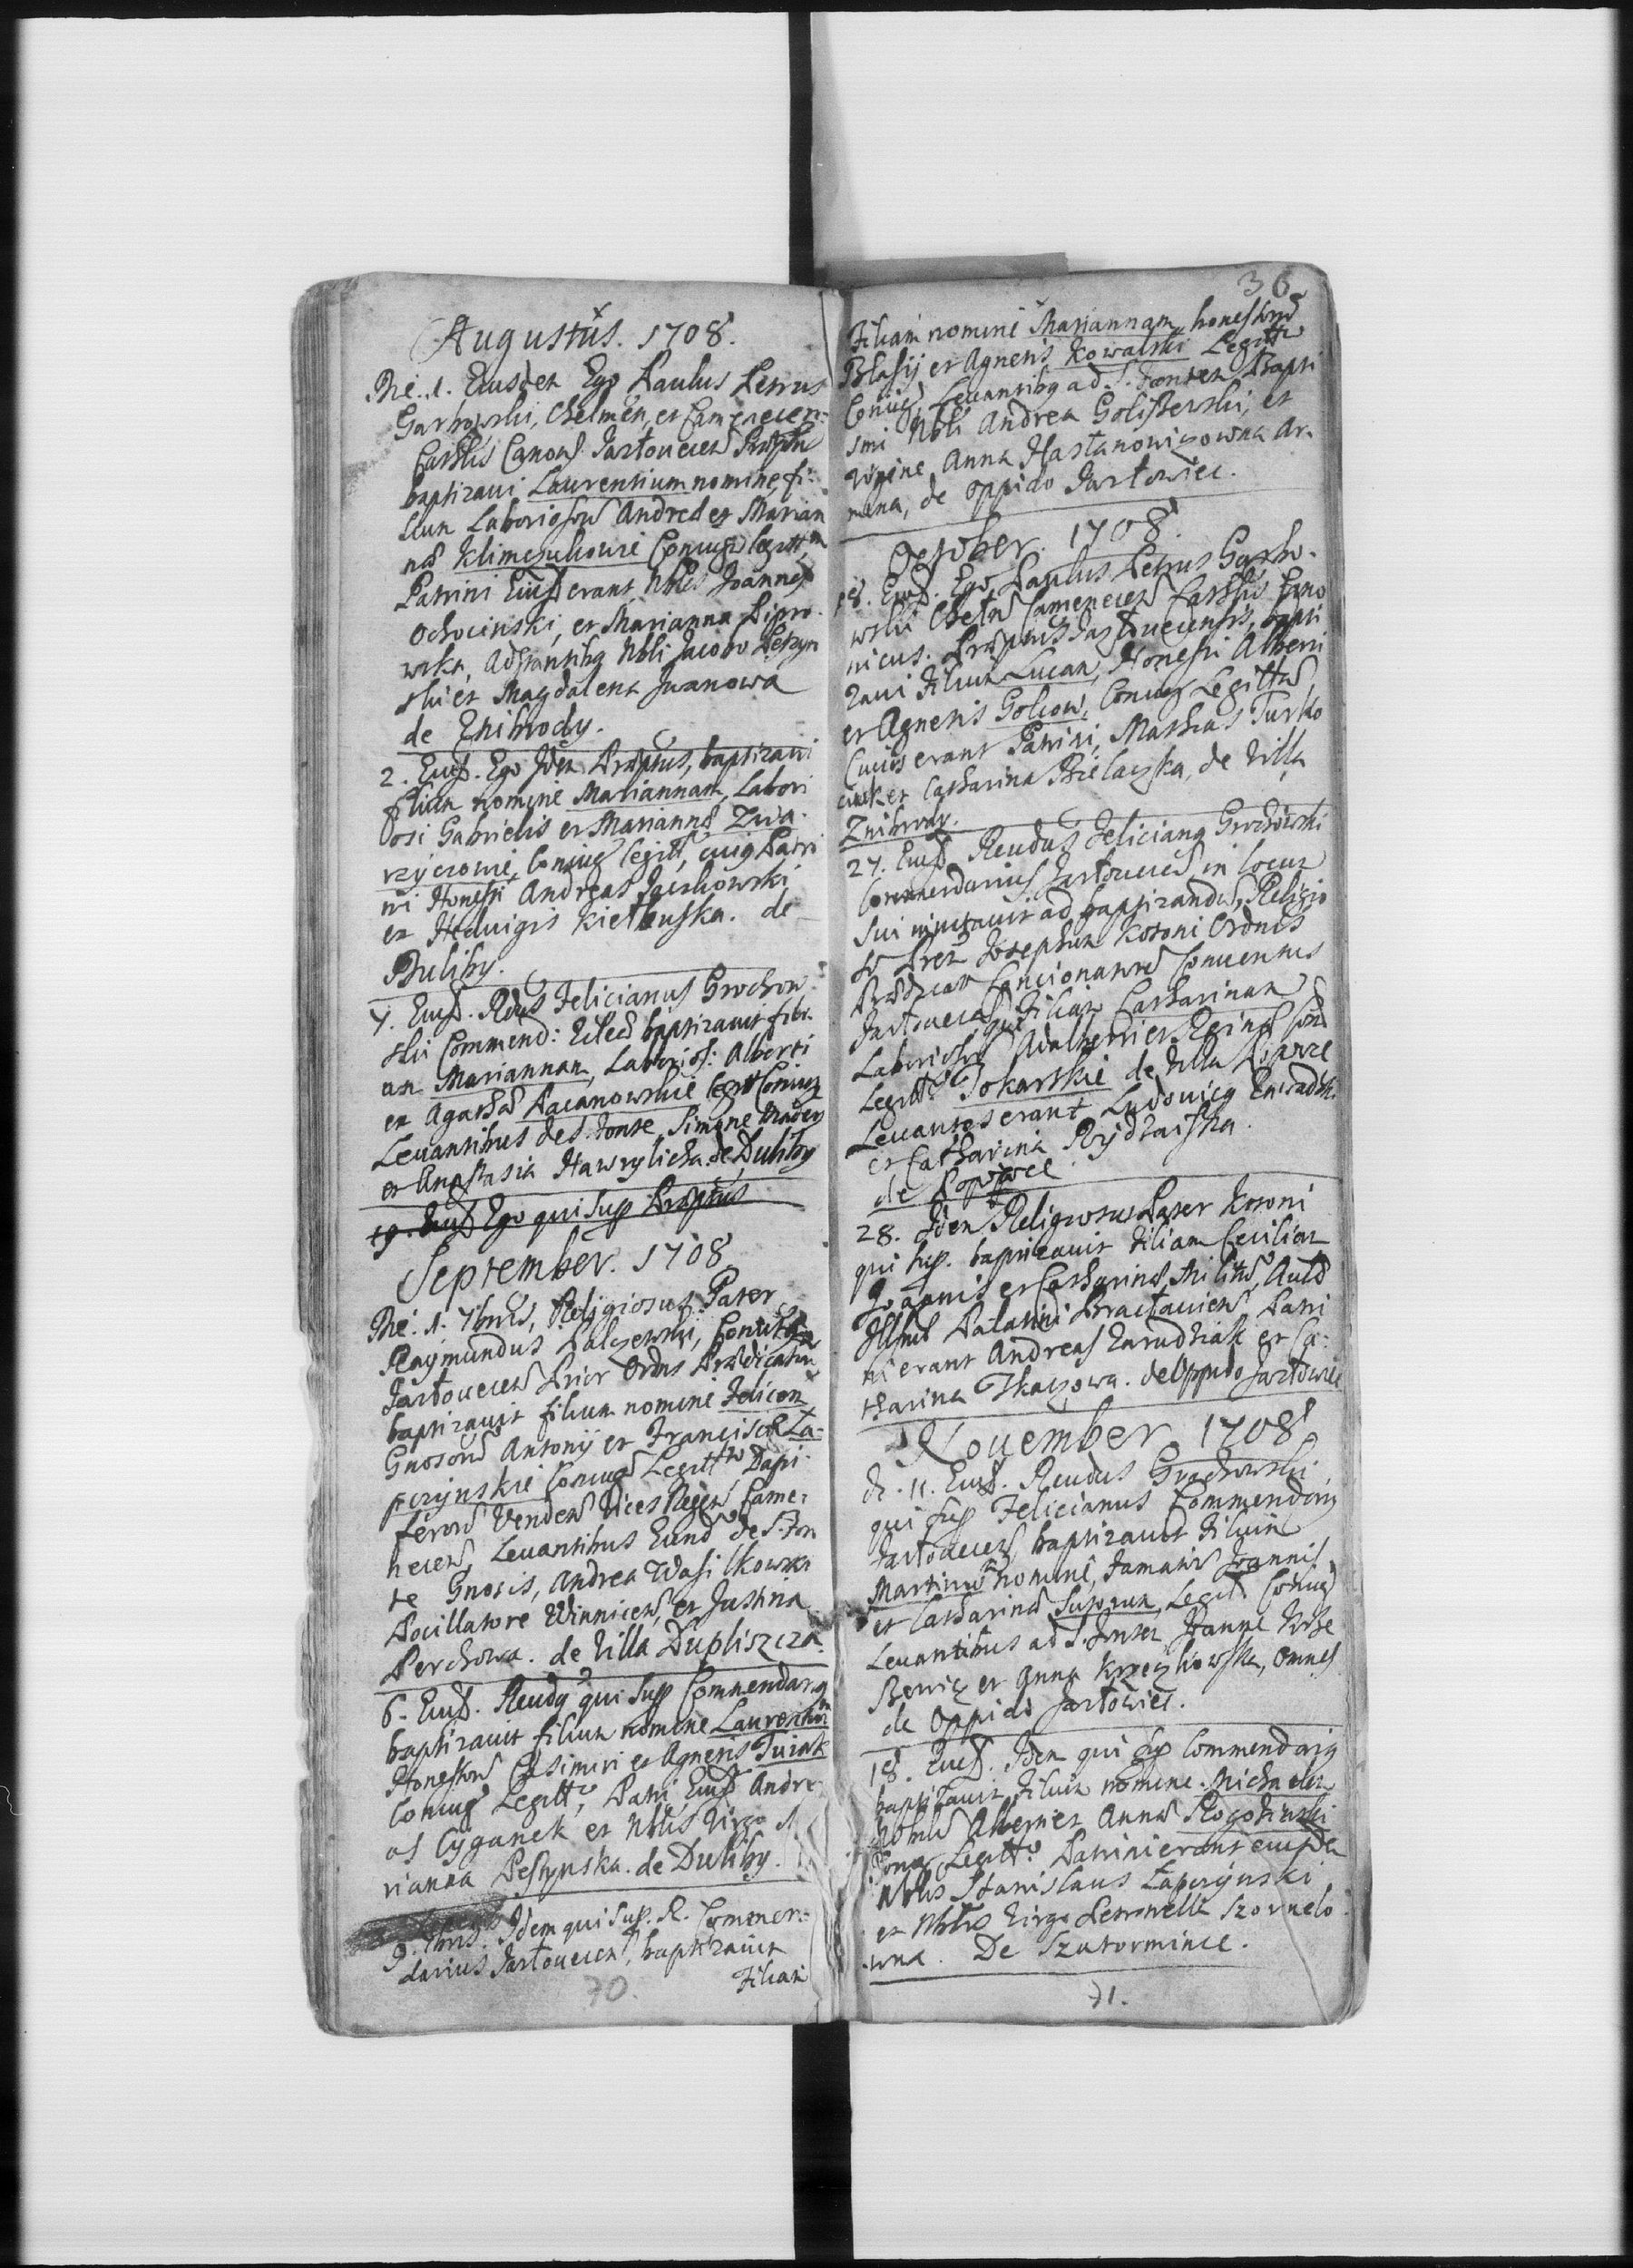 Augustus. 1708.
Die. 1. Eiusdem Ego Paulus Petrus
Garbowski, Chelmen, et Camenecen:
Cathlis Canon Jasłouecen Præptus
baptizaui Laurentium nomine, fi:
lium Laboriosor Andreæ et Marian
næ Klimczukowie Coniug legitt
Patrini Eiusd erant Nbles Joannes
Ochocinski, et Marianna Lipro
wska, Adstantibq Nbli Jacobo
ski et Magdalena Iwanowa
de Znibrody.
2. Eiusd. Ego Idem Præptus, baptizaui
filiam nomine Mariannam, Labori
osi Gabrielis et Mariannæ Zwa.
rzyczowie, Coniug legitt, cuiq Patri
ni Honesti Andreas Jaschowski
et Heduigis Kiełbuska. de
Duliby.
7. Eiusd. Rdus Felicianus Grochow
ski Commend: Eclæ baptizauit fili
am Mariannam, Laborios: Alberti
et Agathæ Pacanowskie legitt Coniug
Leuantibus de S. Fonte Simone
et Anastasia Hawrylicha de Duliby
19. Eiusd Ego qui Sup Præptus
September. 1708
Die. 1. 7bris, Religiosus Pater
Raymundus Palczewski, Conuen
Jasłouecen Prior Ordnis Prædicator
baptizauit filium nomine Felicem
Gnosorum Antonij et Franciscæ Ła-
pczynskie Coniug Legitt Dapi
ferorum Venden Vices Regen Came:
necen, Leuantibus Eund de S. Fon
te Gnosis, Andrea Wasilkowski
Pocillatore Winnicen, et Justina
Perchowa. de Villa Dupliszcza.
6. Eiusd. Reudq qui Sup Commendariq
baptizauit filium nomine Laurentium
Honestor Casimiri et Agnetis Turak
Coniug Legitt, Patri Eiusd Andre
as Cyganek et Nblis Virgo
rianna Pestynska. de Duliby.
9. 7bris. Idem qui Sup. R. Commen:
darius Jasłouecen, baptizauit
Filiam
70.
36
Filiam nomine Mariannam, honestor
Blasij et Agnetis Kowalski Legitt
Coniug, Leuantibq ad S. Fontem Bapti
smi Nbli Andrea et
Virgine Anna Hastanowiczowna Ar.
mena, de Oppido Jasłowiec.
October. 1708.
18. Eiusd. Ego Paulus Petrus Garbo-
wski Chełm Camenecen Cathlis Cano
nicus. Præptus Jasłouecensis, bapti
zaui Filium Lucam, Honesti Alberti
et Agnetis Golcow, Coniug Legitt
Cuius erant Patrini, Mathias Turko
et Catharina Bielaczka, de Villa
Znibrody.
27. Eiusd Reudus Felicianq Grochowski
Commendarius Jasłouecen in locum
Sui inuitauit ad baptizandum, Religio
Josephum Kotoni Ordnis
Prædicat Concionatore Conuentus
Jasłouecen, qui Filiam Catharinam
Laboriosor Adalberti et Reginæ Con
Legitt Tokarskie de Villa
Leuantes erant Ludouicq
et Catharina
de Popowce
28. Idem Religiosus Pater Kotoni
qui sup. baptizauit Filiam Ceciliam
Joannis et Catharinæ, Militum, Aulæ
Illsmi Palatini Bracłauien, Patri
ni erant Andreas et Ca:
tharina Tkaczowa. de Oppido Jasłowiec
Nouember 1708
d. 11. Eiusd. Reudus Grochowski,
qui sup Felicianus Commendariq
Jasłouecen, baptizauit Filium
Martinum nomine, Famator Joannis
et Catharinæ, Legitt Coniug
Leuantibus ad S. Fontem Joanne
et Anna, omnes
de Oppido Jasłowiec.
18. Eiusd. Idem qui Sup Commendariq
baptizauit Filium nomine Michaelem
Nobilium Alberti et Annæ Rogozinski
Coniug Legitt. Patrini erant eiusdem
Nblis Stanislaus Łapczynski
et Nblis Virgo Petronella Szornelo
wna. De Szutormince.
71.